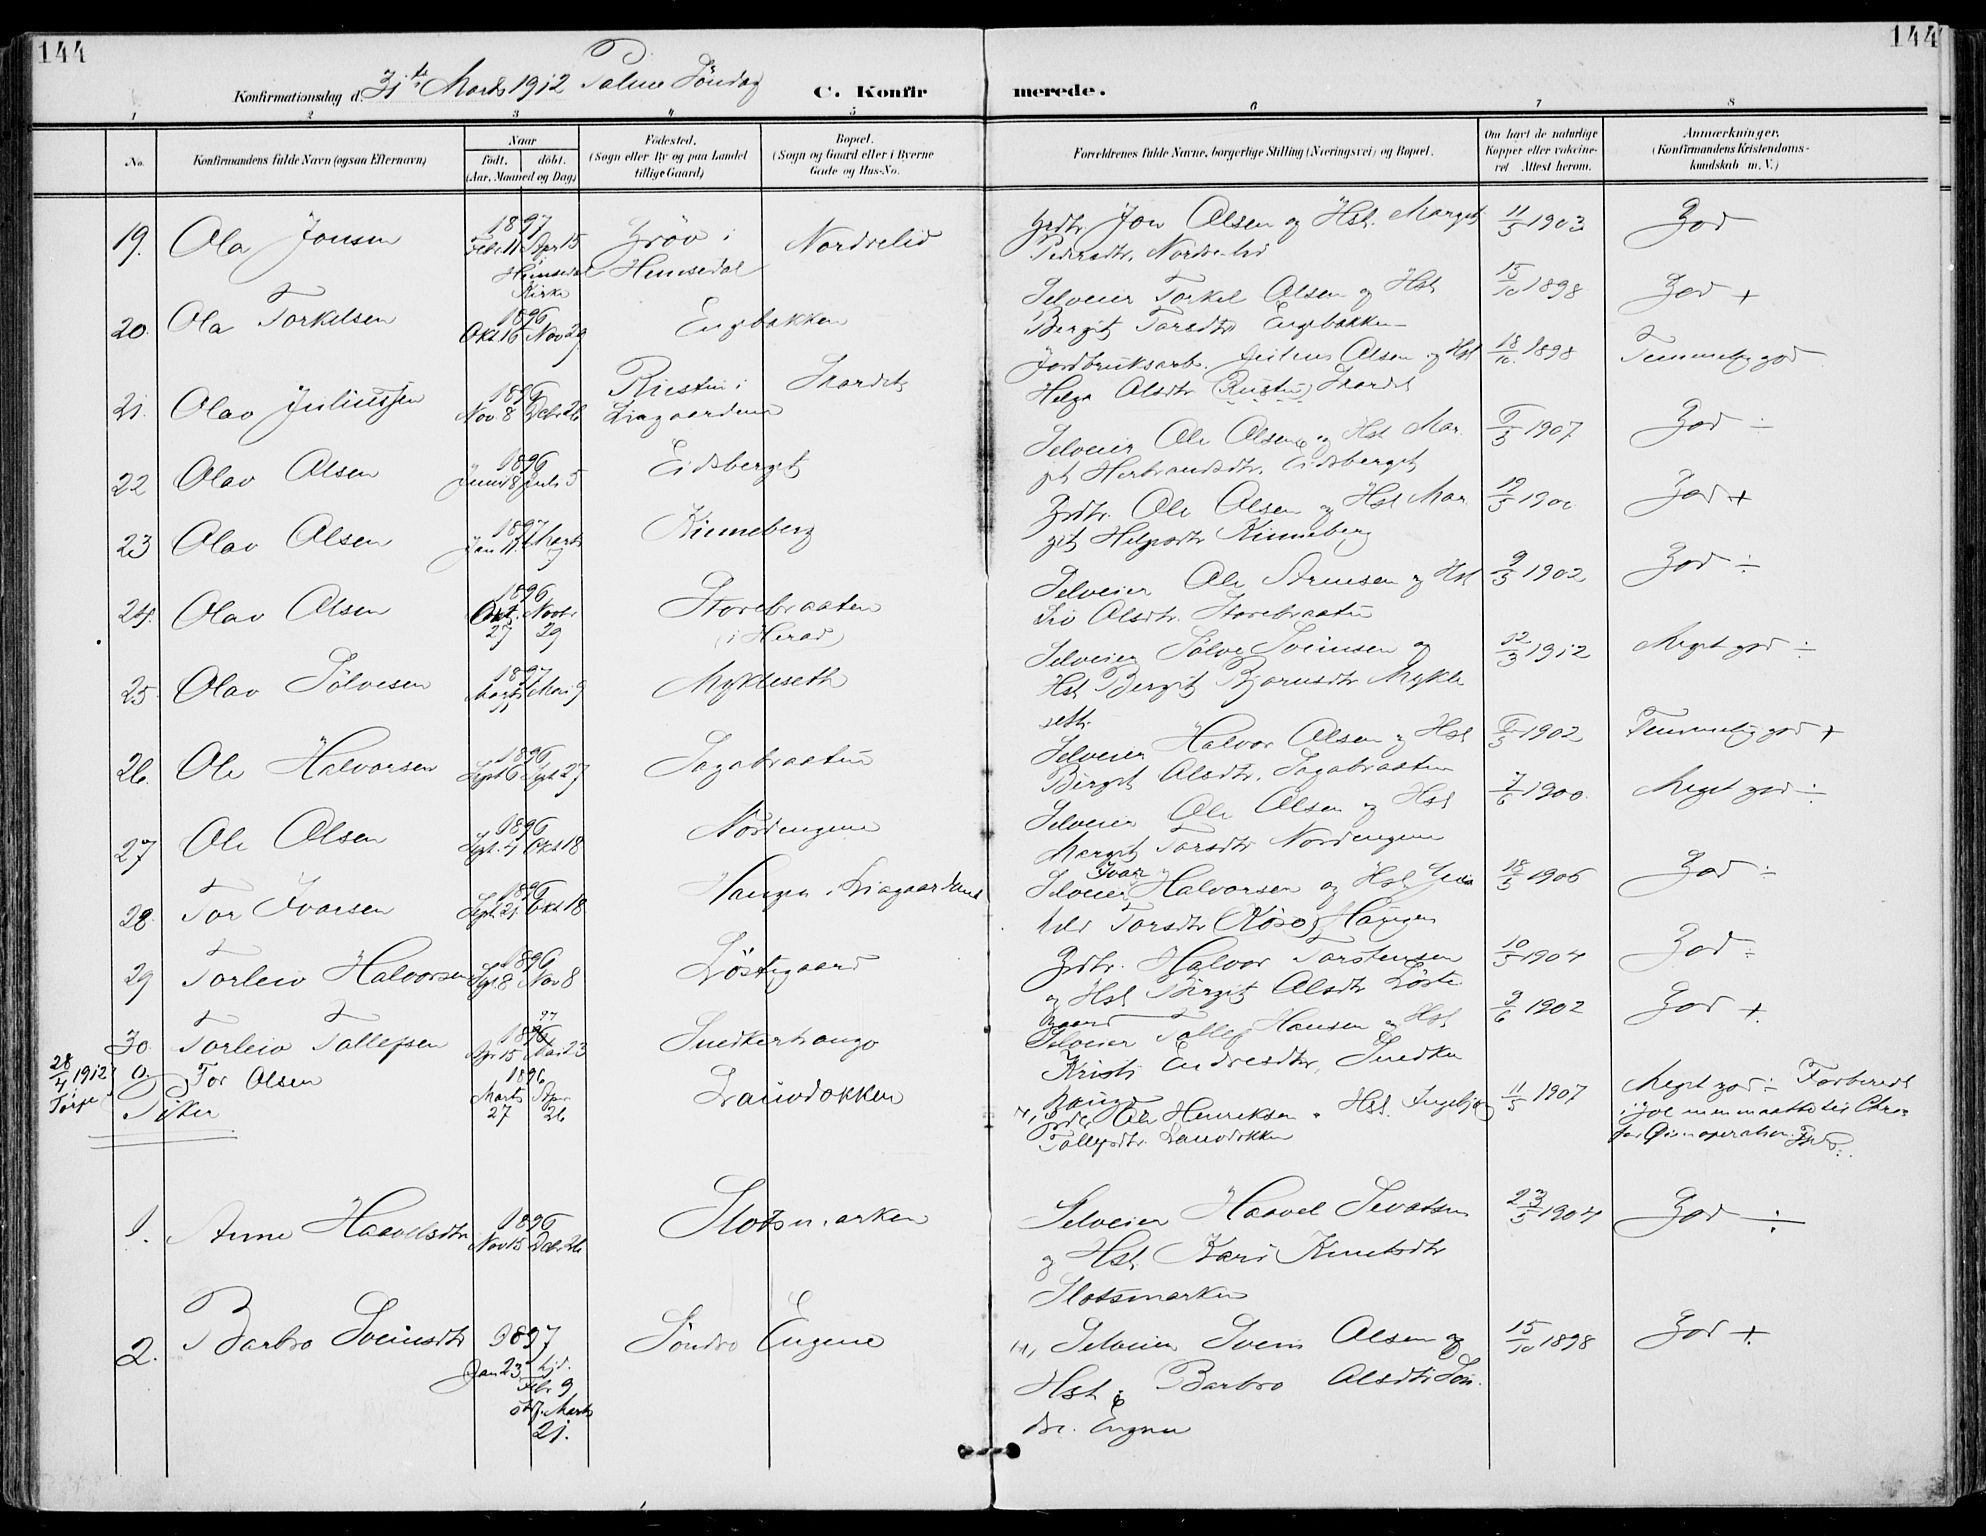 144
144
Konfirmationsdag d. 31te Marts 1912 Palme Söndag
C. Konfirmerede.
1 2 3 4 5 6 7 8
No.
Konfirmandens fulde Navn (ogsaa Efternavn)
Naar
födt. döbt.
(Aar, Maaned og Dag)
Födested.
(Sogn eller By og paa Landet
tillige Gaard)
Bopæl.
(Sogn og Gaard eller i Byerne
Gade og Hus-No.
Forældrenes fulde Navne, borgerlige Stilling (Næringsvei) og Bopæl.
Om havt de naturlige
Kopper eller vakcine-
ret Attest herom.
Anmærkninger.
(Konfirmandens Kristendoms-
kundskab m. V.)
19. Ola Jonsen 1897 Febr 11 Apr 15 Hemsedal Kirke Gröv i Hemsedal Nordrelid
Grdbr Jon Olsen og Hst. Margit
Pedersdtr. Nordrelid 11/5 1903 God
20. Ola Torkelsen 1896 Okt 16 Nov 29 Engebakken
Selveier Torkel Olsen og Hst
Bergit Torsdtr Engebakken 15/10 1898 God +
21. Olav Juliussen 1896 Nov 8 Debr 26 Rusten i Liagaardene Skardet
Jordbruksarb. Julius Olsen og Hst
Helga Olsdtr (Rusten) Skardet 18/10 1898 Temmelig god
22 Olav Olsen 1896 Juni 8 Juli 5 Eidsberget
Selveier Ole Olsen og Hst Mar-
git Herbrandsdtr. Eidsberget 6/5 1907 God ÷
23 Olav Olsen 1897 Jan 11. Marts 7 Kinneberg
Grdbr. Ole Olsen og Hst Mar-
git Helgesdtr Kinneberg 19/5 1900 God +
24. Olav Olsen 1896 Okt. 27 Novbr 29 Storebraaten (i Herad)
Selveier Ole Arnesen og Hst
Liv Olsdtr. Storebraaten 9/5 1902 God ÷
25. Olav Sölvesen 1897 Marts Mai 9 Mykleseth
Selveier Sölve Sveinsen og
Hst Bergit Bjørnsdtr Mykle
seth. 12/3 1912 Meget god ÷
26. Ole Halvorsen 1896 Sept 6 Sept 27 Sagabraaten
Selveier Halvor Olsen og Hst
Birgit Olsdtr. Sagabraaten 6/5 1902 Temmelig god +
27 Ole Olsen 1896 Sept. 4 Okt 18 Nordengene
Selveier Ole Olsen og Hst
Margit Torsdtr Nordengene 7/6 1900. Meget god ÷
28. Tor Ivarsen 1896 Sept 21 Okt 18 Haugen i Liagaardene
Selveier Ivar Halvorsen og Hst
Torsdtr Haugen 18/5 1906 God ÷
29 Torleiv Halvorsen 1896 Sept 8 Nov 8 Löstegaard
Grdbr. Halvor Torstensen
og Hst Birgit Olsdtr Löste
gaard 10/5 1904 God ÷
30 Torleiv Tollefsen 1896 97 Apr 15 Mai 23 Snedkerhaugo
Selveier Tollef Hansen og Hst
Kristi Endresdtr, Snedker
haugo 9/6 1902 God +
28/4 1912 Torpe a. Tor Olsen 1896 Marts 27 Apr 26 Lauvdokken
Grdbr Ole Henriksen Hst. Ingebjör
Tollefsdtr. Lauvdokken 11/5 1907 Meget god ÷ Forberedt
i Gol men maatte til Chra
for Öienoperation.
Piker
1. Anne Haavelsdtr 1896 Nov 15 Debr 26 Slotsmarken
Selveier Haavel Sevatsen
og Hst Kari Knutsdtr
Slotsmarken 23/5 1904 God ÷
2. Barbro Sveinsdtr 1897 Jan 23 hjd. Febr 9 Marts 21. Söndre Engene
Selveier Svein Olsen og
Hst Barbro Olsdtr Sön-
dre Engene 15/10 1898 God +